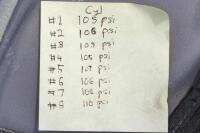 Cyl
#1 105 psi
#2 108 psi
#3 105 psi
#4 105 psi
#5 107 psi
#6 106 psi
#7 108 psi
#8 110 psi